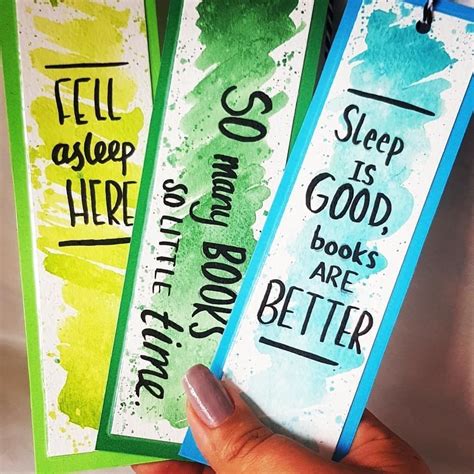 FELL
asleep
HERE
SO many BOOKS
SO LITTLE time.
Sleep
IS
GOOD,
books
ARE
BETTER